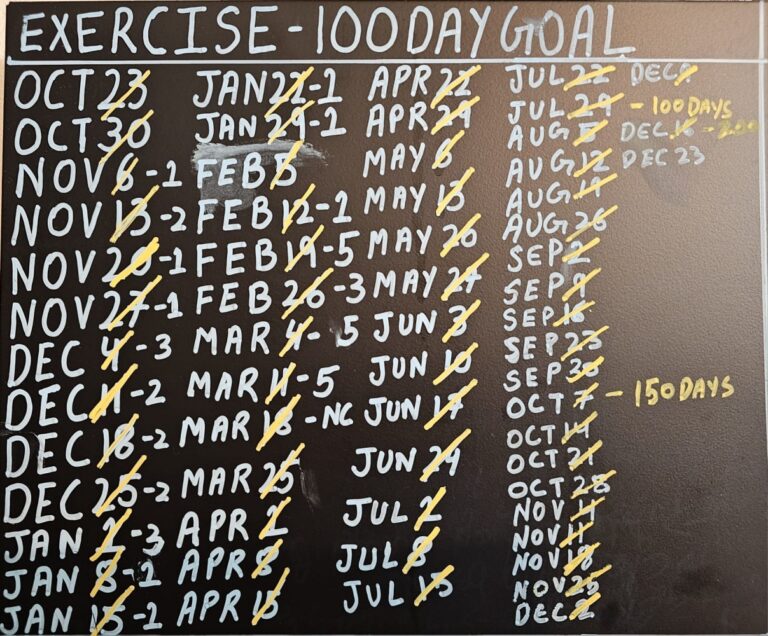 EXERCISE - 100 DAY GOAL
OCT 23
OCT 30
NOV 6 - 1
NOV 13 - 2
NOV 20 - 1
NOV 27 - 1
DEC 4 - 3
DEC 11 - 2
DEC 18 - 2
DEC 25 - 2
JAN 1 - 3
JAN 8 - 1
JAN 15 - 1
JAN 22 - 1
JAN 29 - 1
FEB 5
FEB 12 - 1
FEB 19 - 5
FEB 26 - 3
MAR 4 - 5
MAR 11 - 5
MAR 18 - NC
MAR 25
APR 1
APR 8
APR 15
APR 22
APR 29
MAY 6
MAY 13
MAY 20
MAY 27
JUN 3
JUN 10
JUN 17
JUN 24
JUL 1
JUL 8
JUL 15
JUL 22
JUL 29 - 100 DAYS
AUG 5
AUG 12
AUG 19
AUG 26
SEP 2
SEP 9
SEP 16
SEP 23
SEP 30
OCT 7 - 150 DAYS
OCT 14
OCT 21
OCT 28
NOV 4
NOV 11
NOV 18
NOV 25
DEC 2
DEC 9
DEC 16 - 200
DEC 23